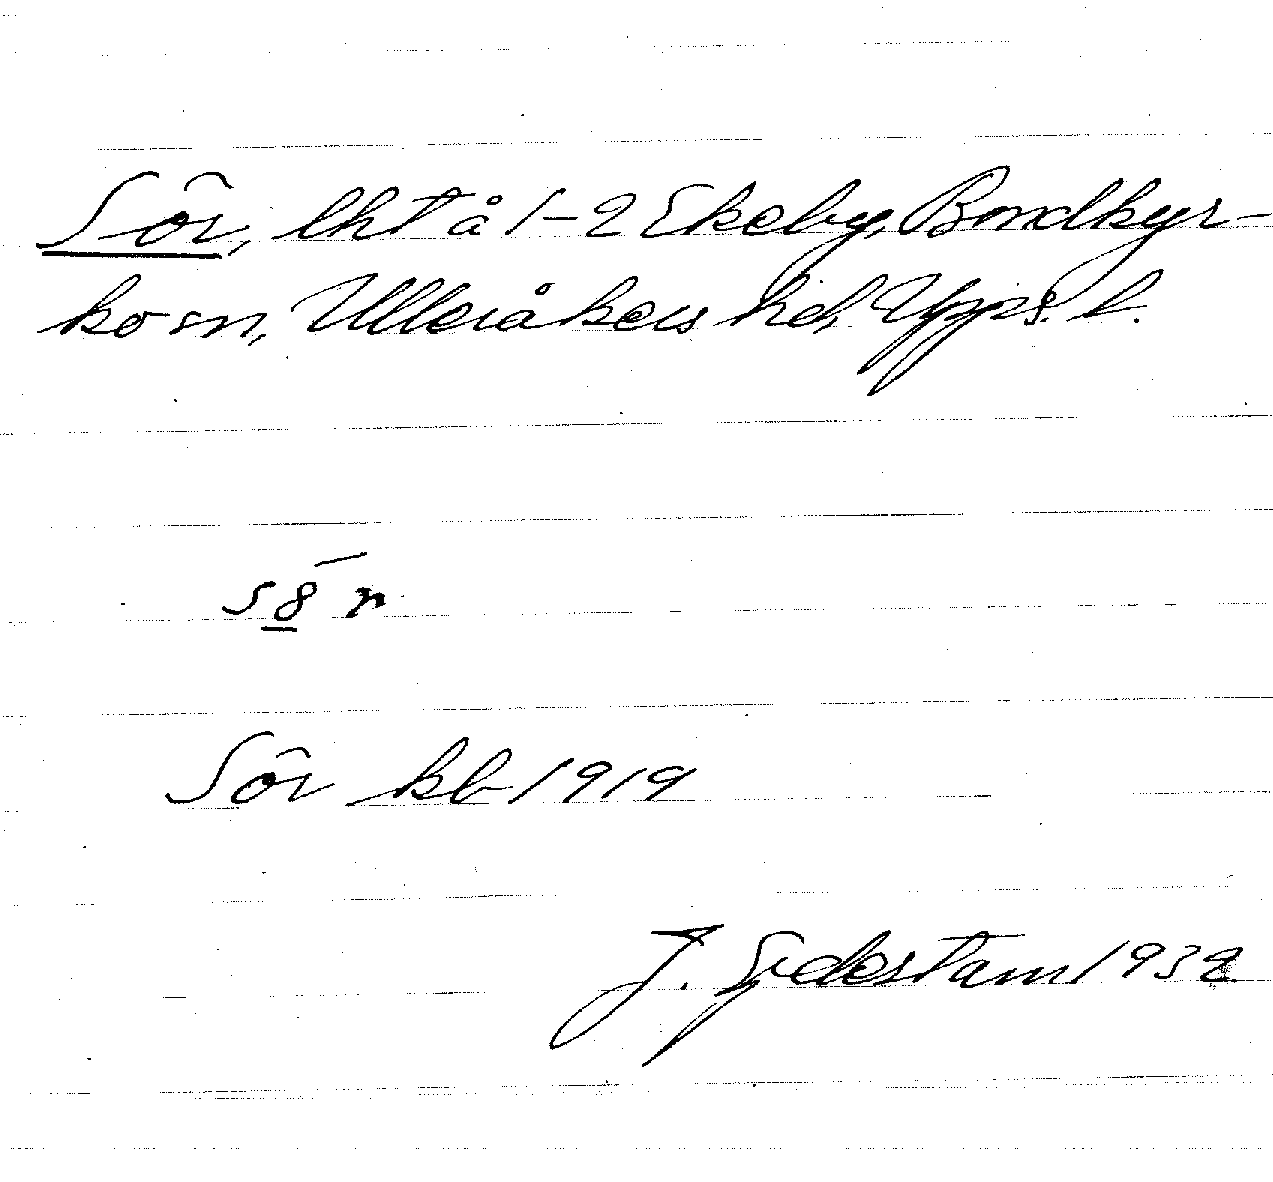 Sör, lht å 1-2 Ekeby, Bondkyr-
ko sn, Ulleråkers hd, Upps. l.
s8̲̄ r
Sör kb 1919
J. Sjedestam 1932